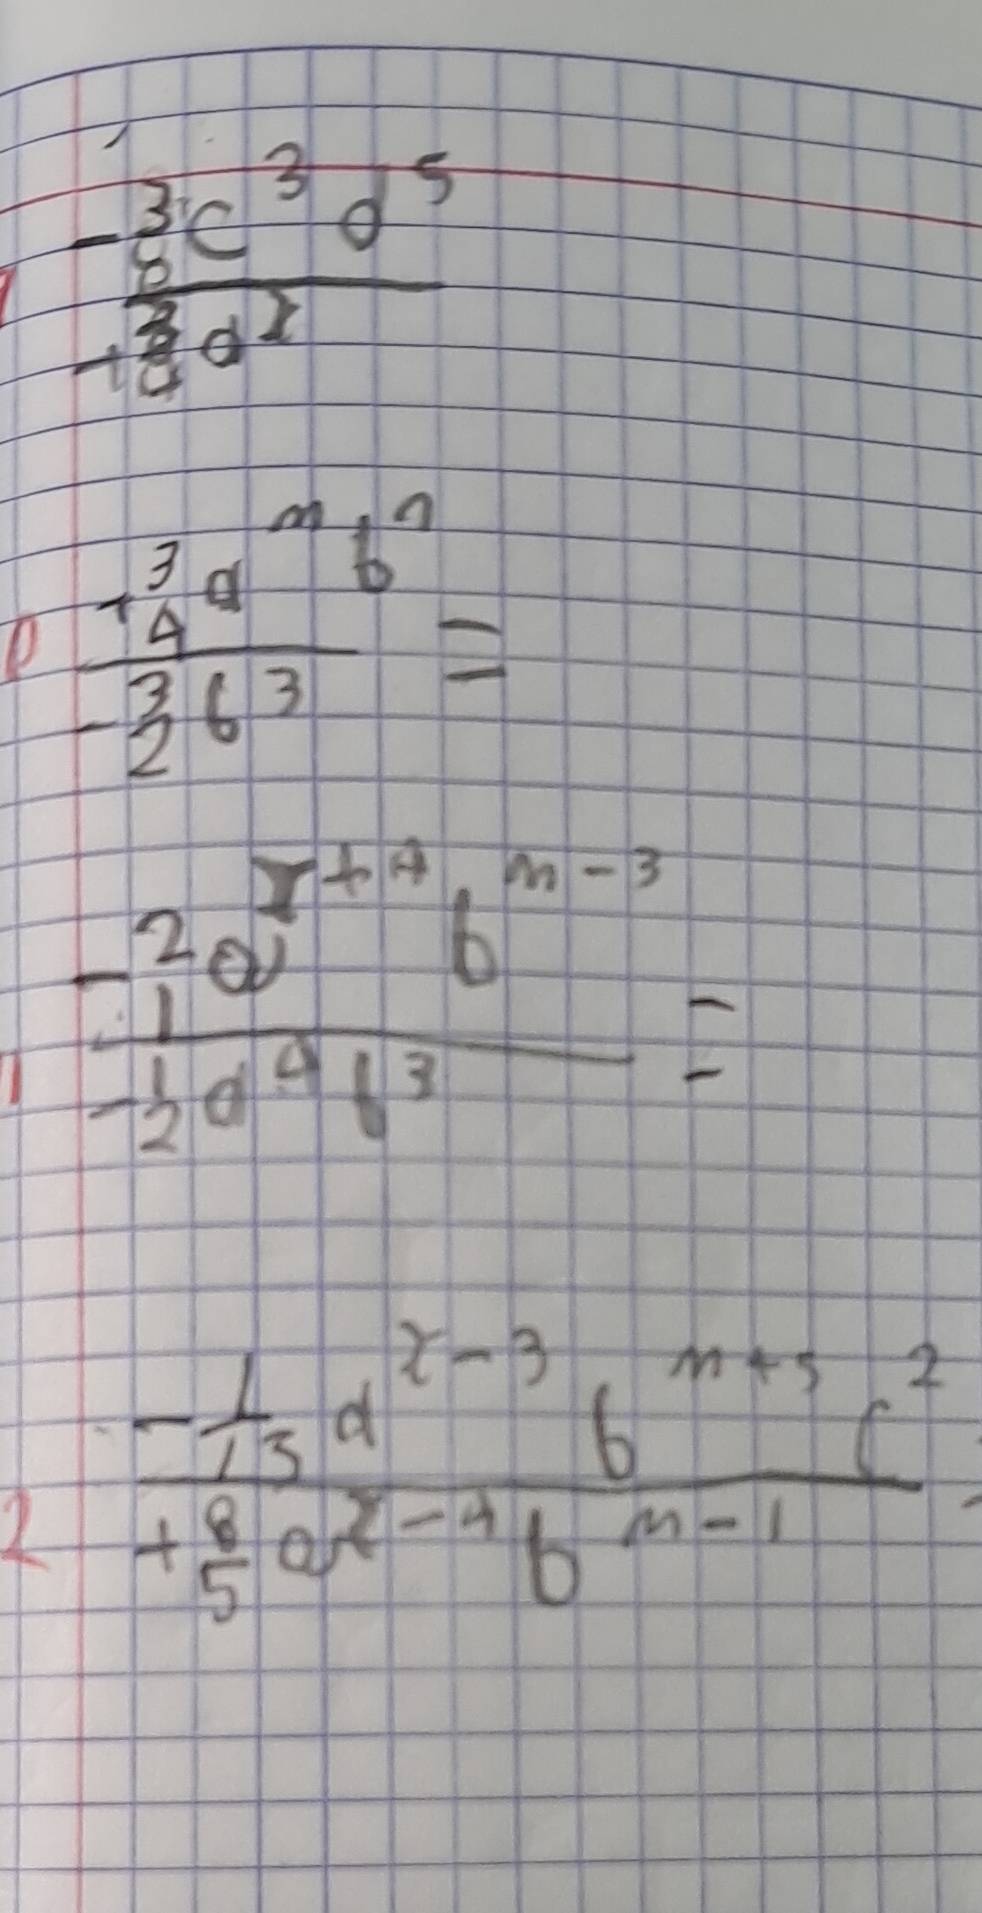 - 3/8 c^3 d^5
+ 3/4 d^x
+ 3/4 a^m b^n
=
- 3/2 b^3
- 2/1 a^x+4 b^m-3
=
11 - 1/2 a^4 b^3
- 1/15 a^x-3 b^m+5 c^2
2 + 8/5 a^x-4 b^m-1